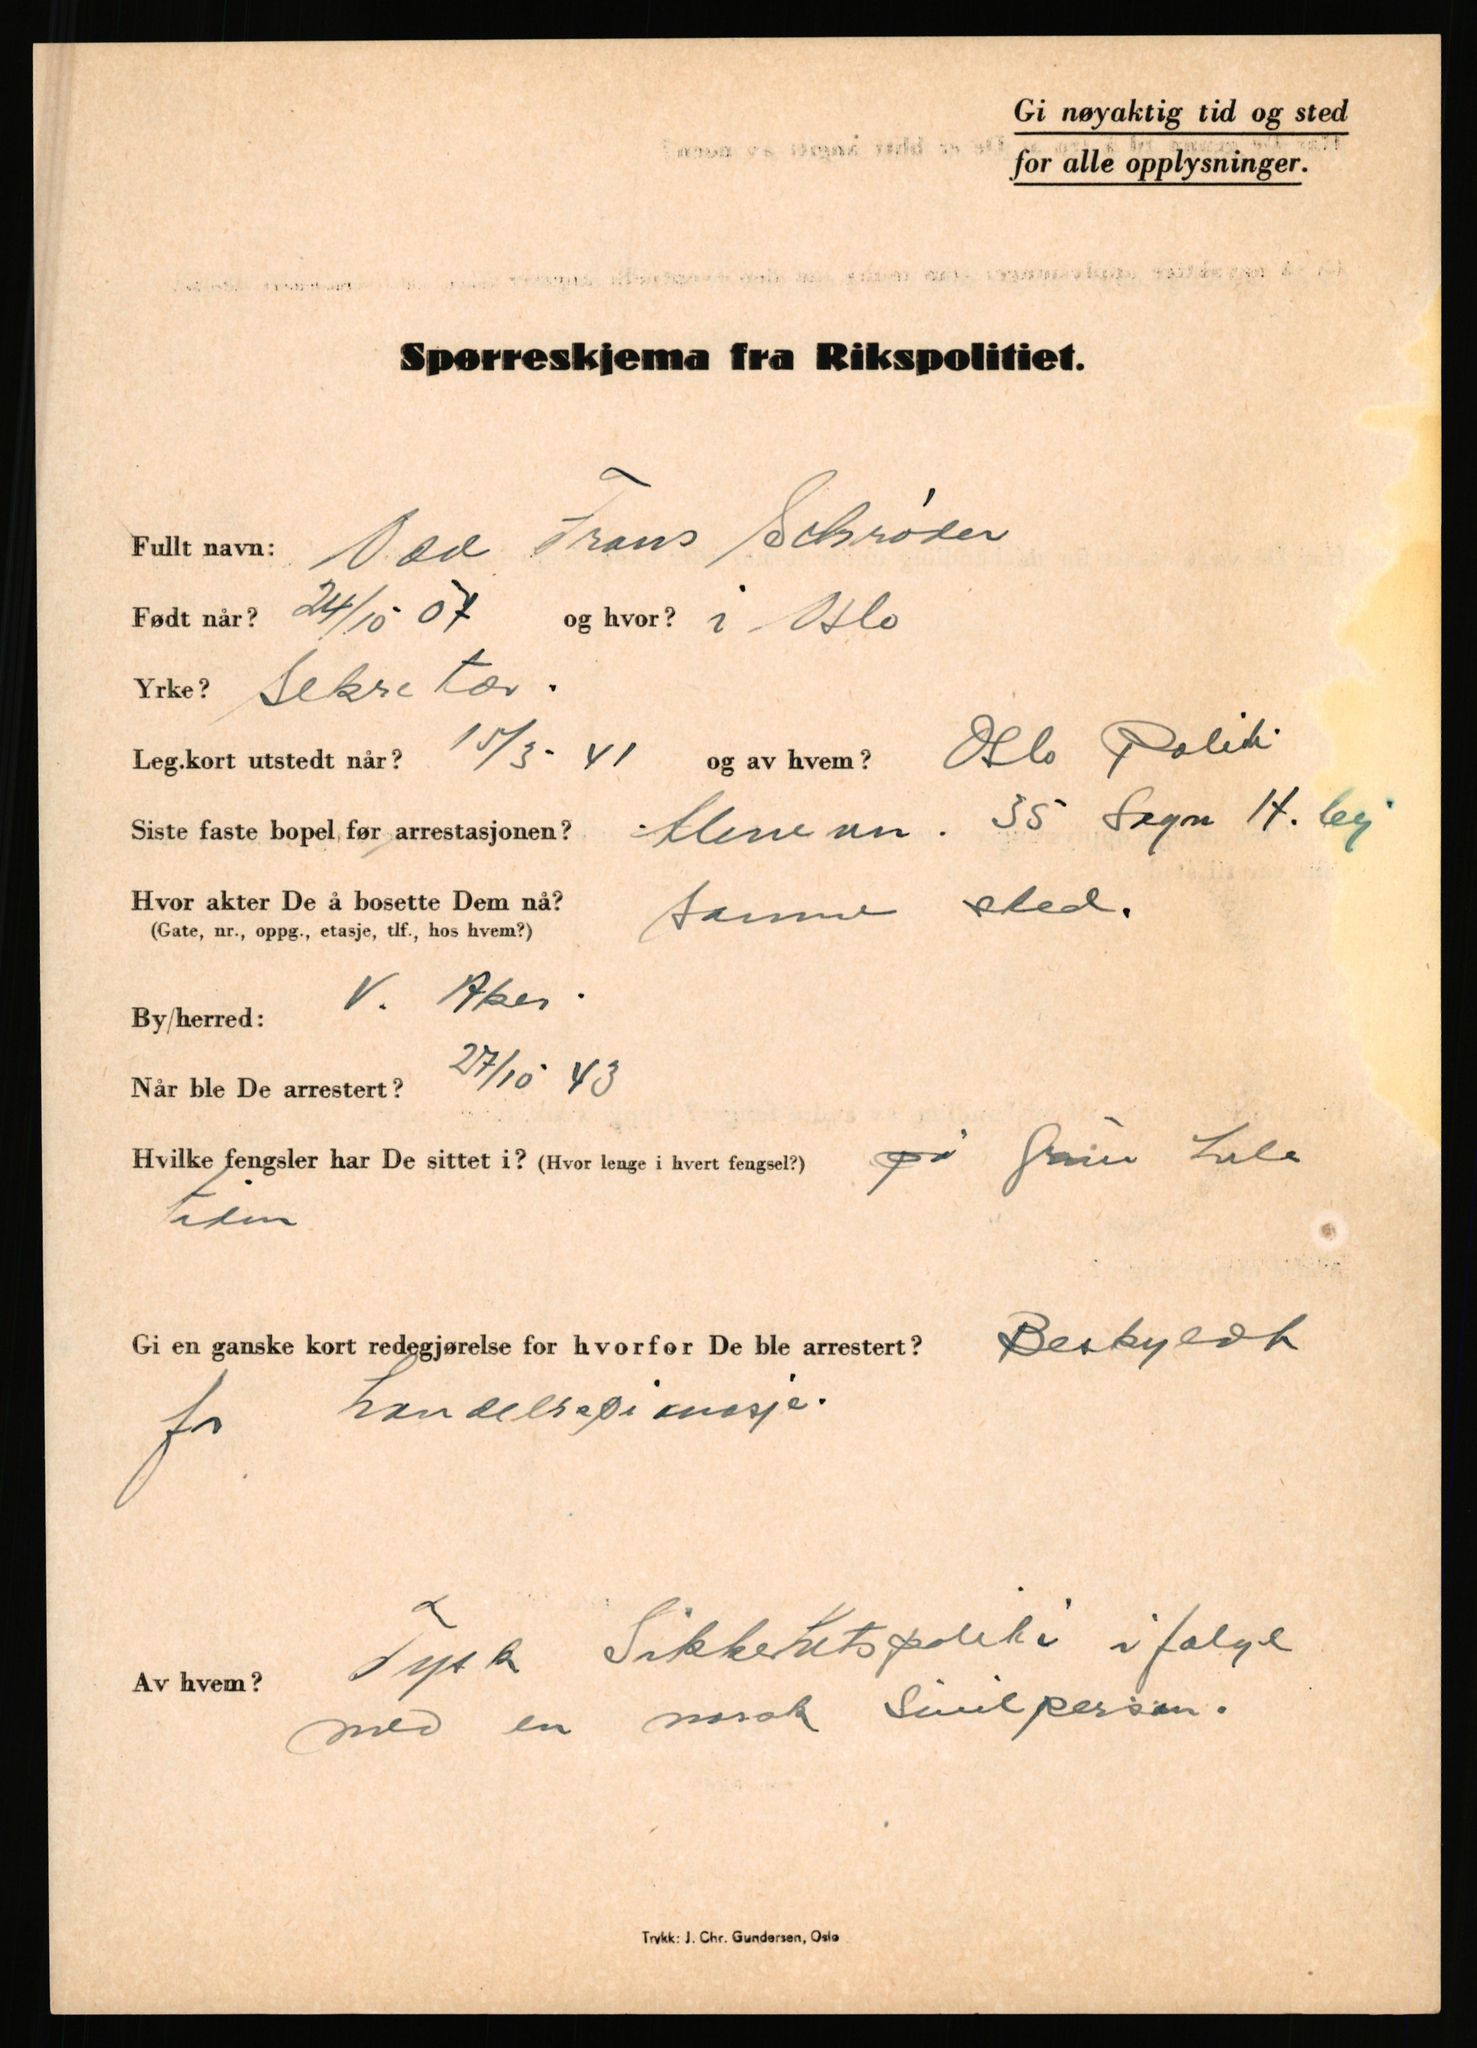 Gi nøyaktig tid og sted
for alle opplysninger.
Spørreskjema fra Rikspolitiet.
Fullt navn: Odd Frans Schrøder
Født når? 24/10 07 og hvor? i Oslo
Yrke? Sekretær.
Leg.kort utstedt når? 15/3- 41 og av hvem? Oslo Politi
Siste faste bopel før arrestasjonen? 35 Sogn H. by
Hvor akter De å bosette Dem nå? Samme sted.
(Gate, nr., oppg., etasje, tlf., hos hvem?)
By/herred: V. Aker.
Når ble De arrestert? 27/10 43
Hvilke fengsler har De sittet i? (Hvor lenge i hvert fengsel?) på Grini hele
tiden
Gi en ganske kort redegjørelse for hvorfor De ble arrestert? Beskyldt
for handelsspionasje.
Av hvem? Tysk Sikkerhetspoliti i følge
med en norsk Sivilperson.
Trykk: J. Chr. Gundersen, Oslo